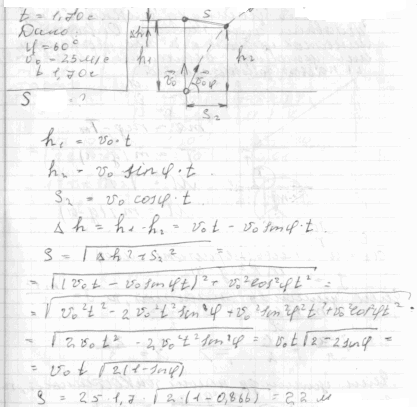 t = 1,70 с
Дано
φ = 60°
v₀ - 25 м/с
t 1,70 с
S ?
S
Δh
h₁
h₂
v₀
v₀ φ
S₂
h₁ = v₀ · t
h₂ - v₀ sinφ · t
S₂ = v₀ cosφ · t
Δh = h₁ - h₂ = v₀t - v₀sinφ · t
S = √(Δh² + S₂²) =
= √((v₀t - v₀sinφt)² + v₀²cos²φt²) =
= √(v₀²t² - 2v₀²t²sinφ + v₀²sin²φt² + v₀²cos²φt²) .
= √(2v₀t² - 2v₀²t²sinφ) = v₀t√(2 - 2sinφ) =
= v₀t √(2(1 - sinφ))
S = 25 · 1,7 · √(2 · (1 - 0,866)) = 22 м